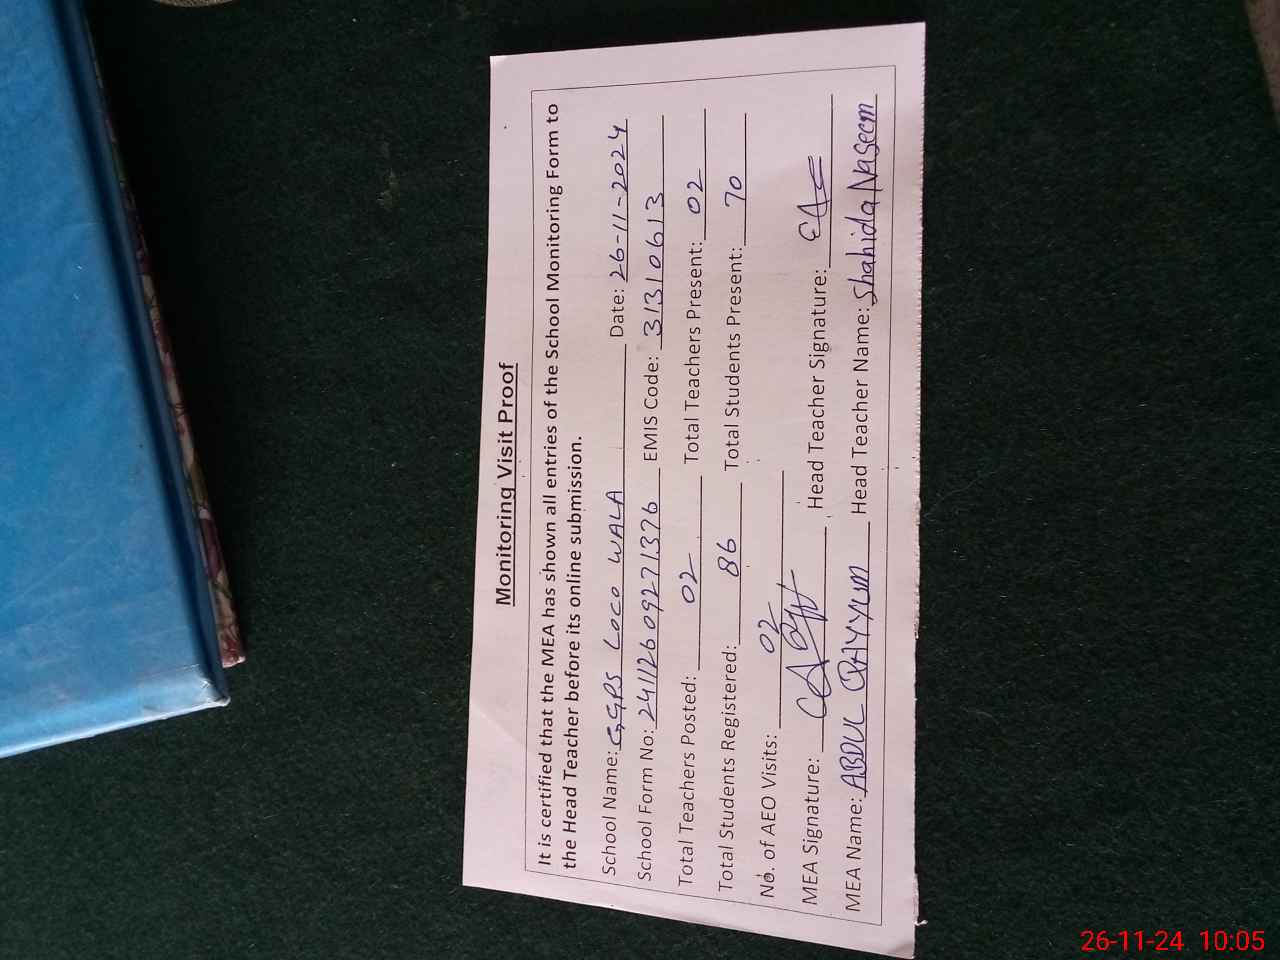 Monitoring Visit Proof
It is certified that the MEA has shown all entries of the School Monitoring Form to
the Head Teacher before its online submission.
School Name: GGPS LOCO WALA Date: 26-11-2024
School Form No: 24112609271376 EMIS Code: 31310613
Total Teachers Posted: 02 Total Teachers Present: 02
Total Students Registered: 86 Total Students Present: 70
No. of AEO Visits: 02
MEA Signature: Head Teacher Signature:
MEA Name: ABDUL QAYYUM Head Teacher Name: Shahida Naseem
26-11-24 10:05